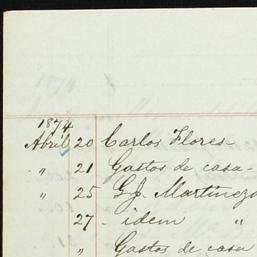 1874
Abril 20 Carlos Flores
" 21 Gastos de casa
" 25 G. J. Martinez
27 idem "
" Gastos de casa